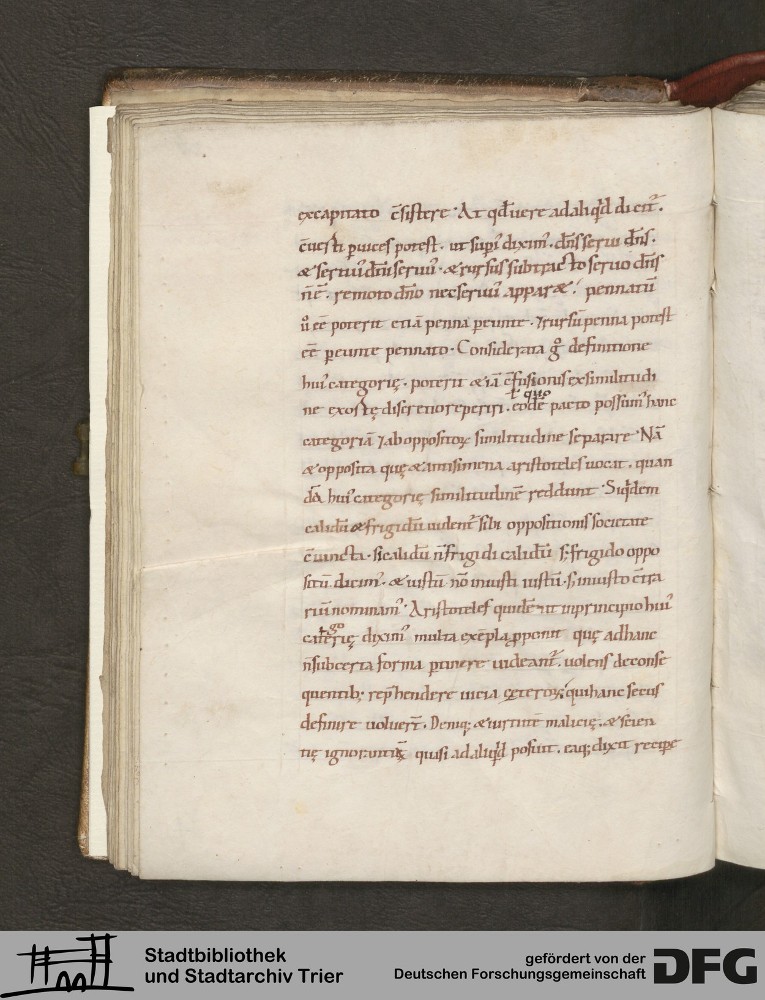 excapitato c̄sistere · At qđ uere ad aliqͥd dicit᷑.
c̄uerti ꝑ uices potest · ut supͥ diximꝰ · dn̄s serui dn̄s ·
& seruuꝰ dn̄i seruuꝰ · & rursus subtracto seruo dn̄s
n̄ ē · remoto dn̄o nec seruuꝰ appar& · pennatū
ū eē poterit etiā penna pereunte · ⁊ rursū penna potest
eē pereunte pennato · Considerata gͦ definitione
huiꝰ categorię · poterit &iā c̄fusionis ex similitudi
ne exortę discretio reperiri · eodē pacto possumꝰ hanc
ł quo
categoriā ⁊ ab oppositoꝝ similitudine separare · Nā
& opposita quę & antisimena aristoteles uocat · quan
dā huiꝰ categorię similitudinē reddunt · Siqͥdem
calidū & frigidū uident᷑ sibi oppositionis societate
c̄iuncta · si calidū n̄ frigidi calidū sꝫ frigido oppo
sitū dicimꝰ · & iustū nō iniusti iustū · sꝫ iniusto c̄tra
riū nominamꝰ · Aristoteles quidē ut in principio huiꝰ
caterię diximꝰ multa exēpla ꝓponit quę ad hanc
go
n̄ sub certa forma ꝑtinere uideant᷑ · uolens de conse
quentibꝫ rep̄hendere uicia ceteroꝝ qui hanc secus
definire uoluer̄t · Deniqꝫ & uirtutē malicię · & scien
tię ignorantiā quasi ad aliqͥd posuit · eaqꝫ dixit recipe
Stadtbibliothek
und Stadtarchiv Trier
gefördert von der
Deutschen Forschungsgemeinschaft
DFG